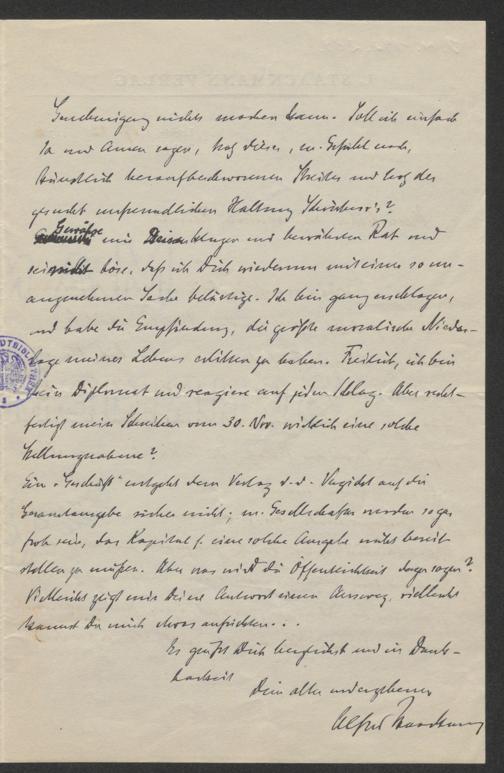 L. STAACKMANN VERLAG
Genehmigung nichts machen kann. Soll ich einfach
Ja und Amen sagen, trotz dieses, m. Gefühl nach,
künstlich heraufbeschworenen Streites und trotz der
gesucht unfreundlichen Haltung Schönherr's?
Gewähre
mir Deinen klugen und bewährten Rat und
sei nicht böse, daß ich Dich wiederum mit einer so un-
angenehmen Sache belästige. Ich bin ganz erschlagen,
und habe die Empfindung, die größte moralische Nieder-
lage meines Lebens erlitten zu haben. Freilich, ich bin
kein Diplomat und reagiere auf jeden Schlag. Aber recht-
fertigt mein Schreiben vom 30. Nov. wirklich eine solche
Stellungnahme?
Ein "Geschäft" entgeht dem Verlag d. d. Verzicht auf die
Gesamtausgabe sicher nicht; m. Gesellschafter werden sogar
froh sein, das Kapital f. eine solche Ausgabe nicht bereit
stellen zu müßen. Aber was wird die Öffentlichkeit dazu sagen?
Vielleicht zeigt mir Deine Antwort einen Ausweg, vielleicht
kannst Du mich etwas aufrichten...
Es grüßt Dich herzlichst und in Dank-
barkeit
Dein alter und ergebener
Alfred